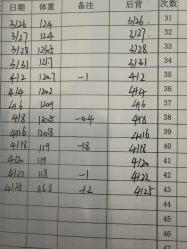 日期 体重 备注 后背 次数
3/26 124 3/26 31
3/27 124 3/27 32
3/28 123.5 3/28 33
3/31 3/31 34
4/2 120.7 -1 4/2 35
4/4 120.2 4/4 36
4/6 120.9 4/6 37
4/8 120.5 -0.4 4/8 38
4/16 120.8 4/16 39
4/18 119 -1.8 4/18 40
4/20 119 4/20 41
4/22 118 -1 4/22 42
4/25 116.8 -1.2 4/25 43